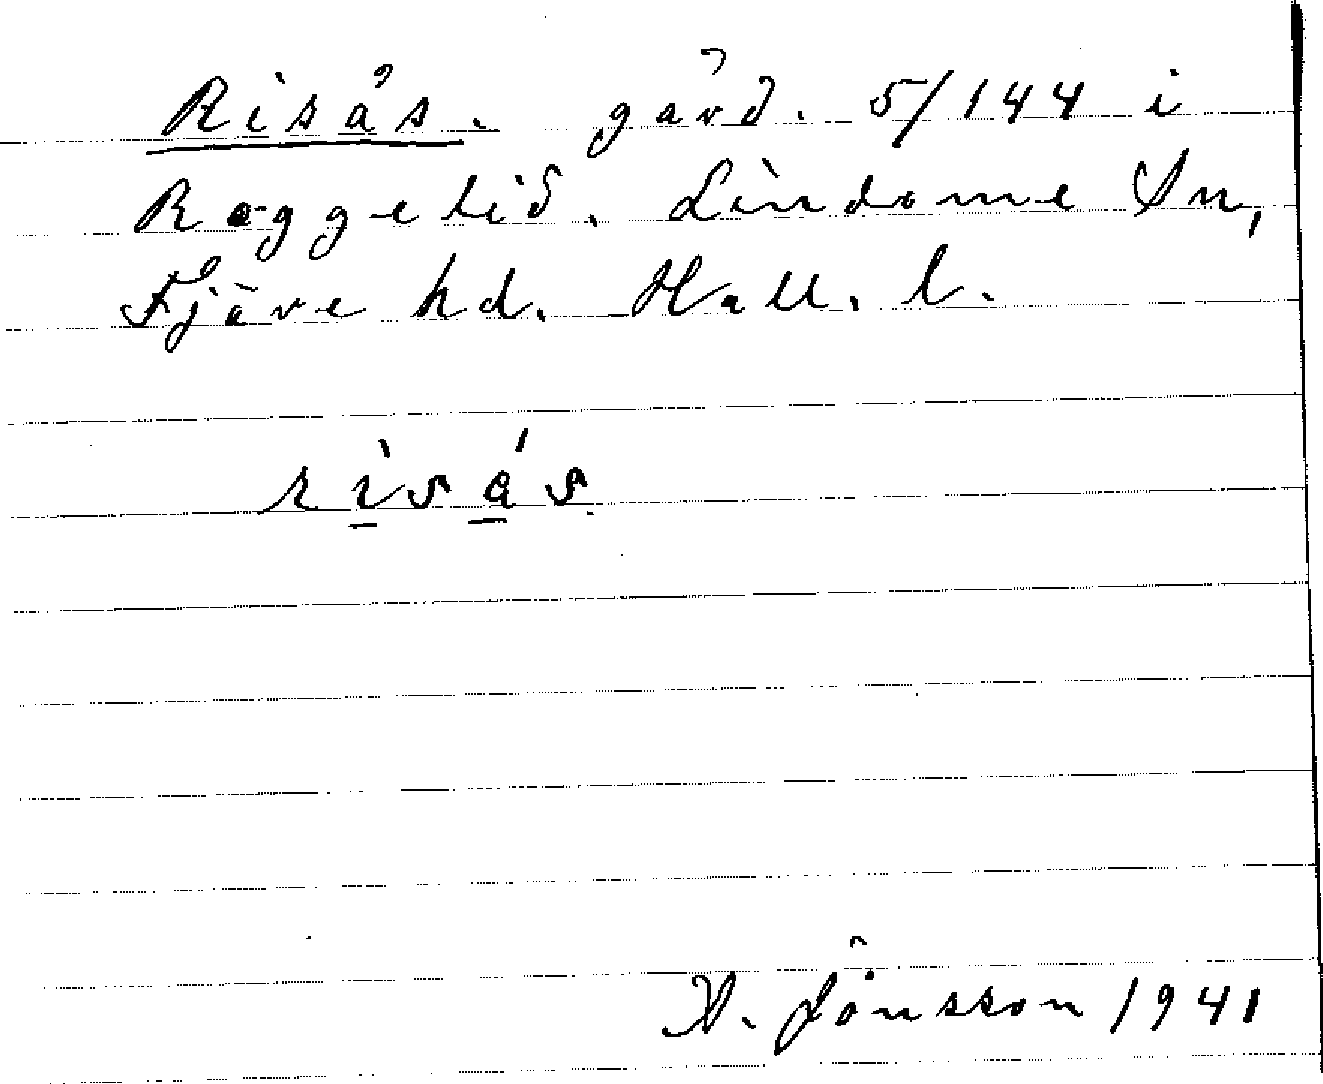 Risås. gård. 5/144 i
Roggelid. Lindome Sn,
Fjäre hd. Hall. l.
rìsás
H. Jönsson 1941